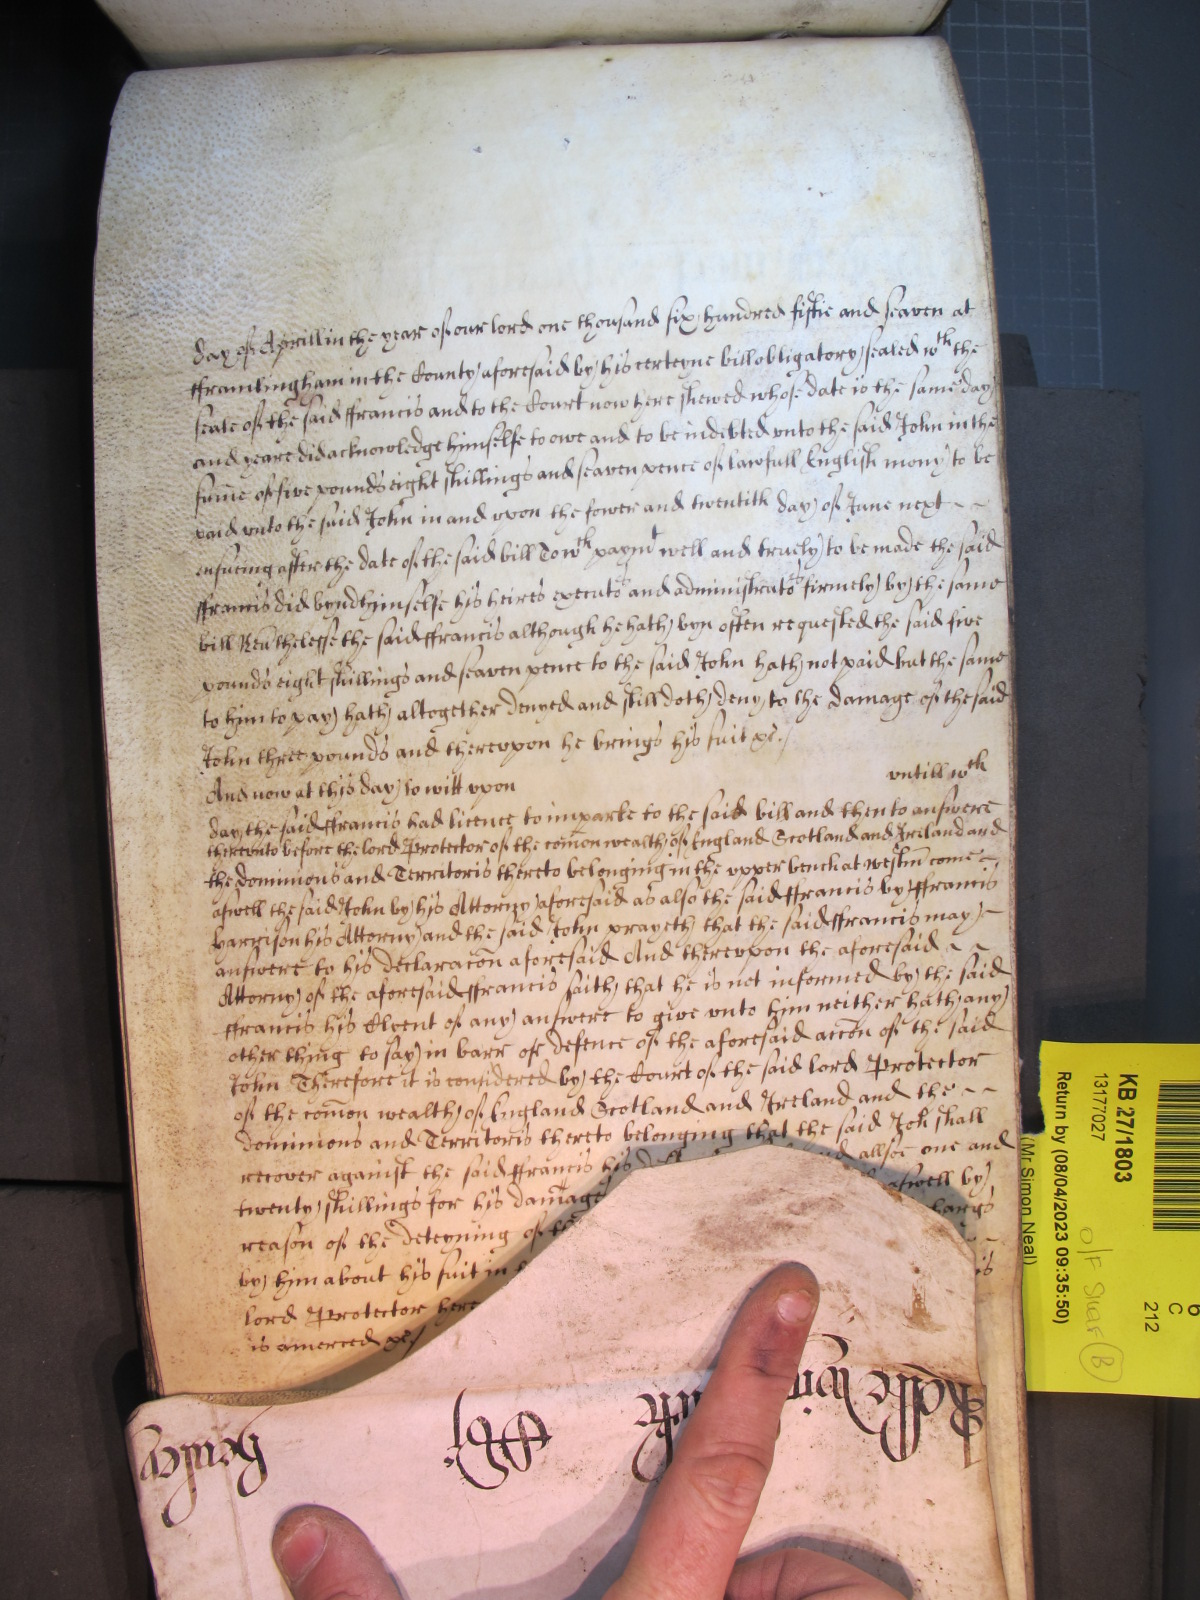 day of Aprill in the yeare of our lord one thousand six hundred fiftie and seaven at
fframlingham in the County aforesaid by his certeyne bill obligatory sealed wth the
seale of the said ffrancis and to the Court now here shewed whose date is the same day
and yeare did acknowledge himselfe to owe and to be indebted unto the said John in the
sume of five pounds eight shillings and seaven pence of lawfull English mony to be
paid unto the said John in and upon the fower and twentith day of June next
ensueing after the date of the said bill To wch paymt well and truely to be made the said
ffrancis did bynd himselfe his heires executors and administrators firmely by the same
bill Neutheless the said ffrancis although he hath byn often requested the said five
pounds eight shillings and seaven pence to the said John hath not paid but the same
to him to pay hath altogether denyed and still doth deny to the damage of the said
John three pounds and thereupon he brings his suit &c.
And now at this day to witt upon untill wch
day the said ffrancis had licence to imparle to the said bill and then to answere
thereunto before the lord Protector of the comon wealth of England Scotland and Ireland and
the dominions and Territoris thereto belonging in the upper bench at westm come
aswell the said John by his Attorny aforesaid as also the said ffrancis by ffrancis
harrison his Attorny and the said John prayeth that the said ffrancis may
answere to his declaracon aforesaid And thereupon the aforesaid
Attorny of the aforesaid ffrancis saith that he is not informed by the said
ffrancis his Clyent of any answere to give unto him neither hath any
other thing to say in barr or defence of the aforesaid accon of the said
John Therefore it is considered by the Court of the said lord Protector
of the comon wealth of England Scotland and Ireland and the
dominions and Territoris thereto belonging that the said Joh shall
recover against the said ffrancis his allsoe one and
twenty shillings for his damage aswell by
reason of the deteyning of the
by him about his suit in
lord Protector here is
is amerced &c
KB 27/1803
13177027
Return by (08/04/2023 09:35:50)
(Mr Simon Neal)
6
C
212
B